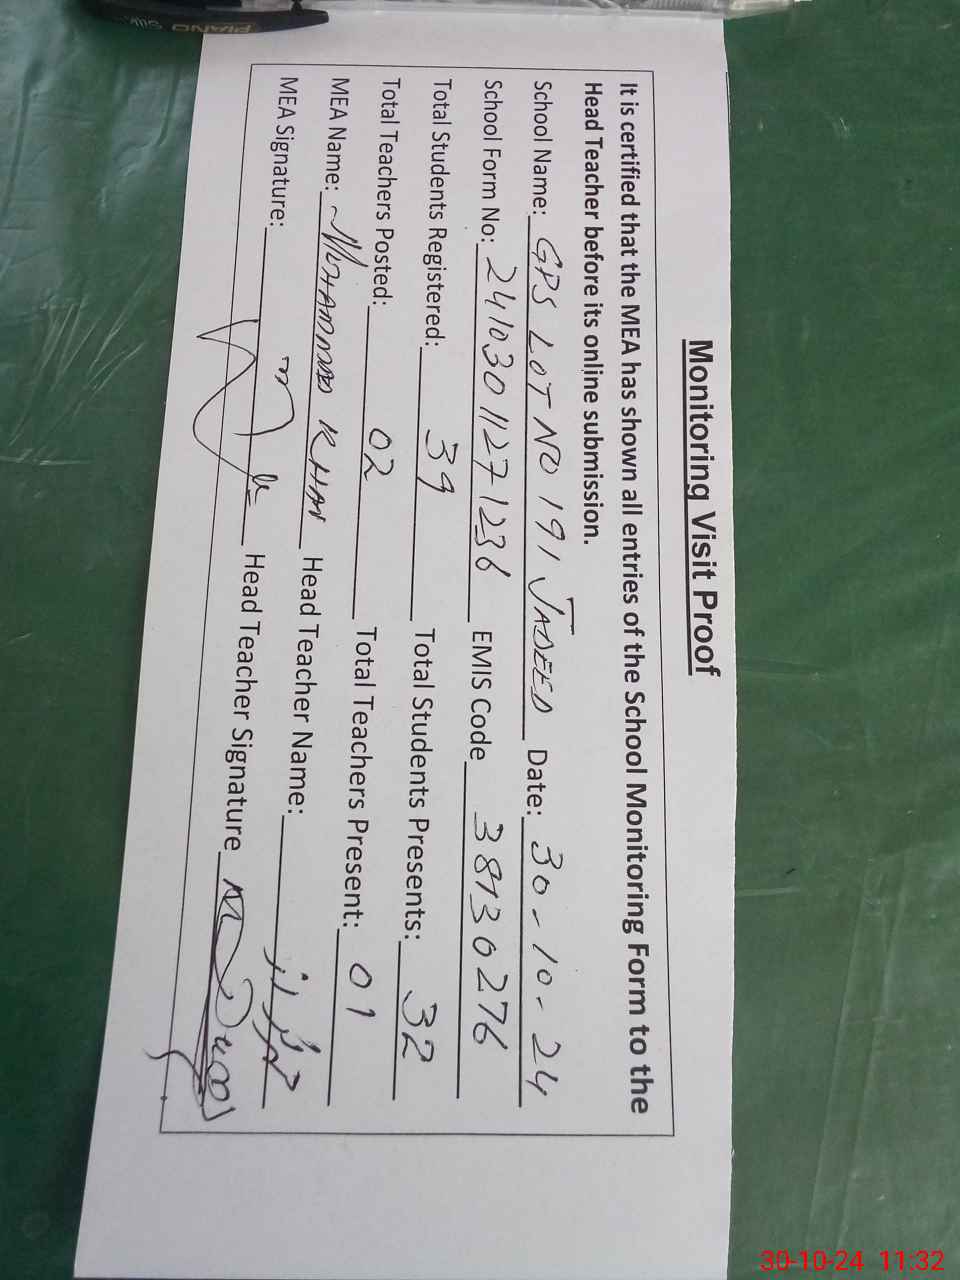 PIANO
Monitoring Visit Proof
It is certified that the MEA has shown all entries of the School Monitoring Form to the
Head Teacher before its online submission.
School Name: GPS LOT NO 191 JADEED Date: 30-10-24
School Form No: 24103011271236 EMIS Code 38130276
Total Students Registered: 39 Total Students Presents: 32
Total Teachers Posted: 02 Total Teachers Present: 01
MEA Name: MUHAMMAD KHAN Head Teacher Name:
MEA Signature: Head Teacher Signature
30-10-24 11:32